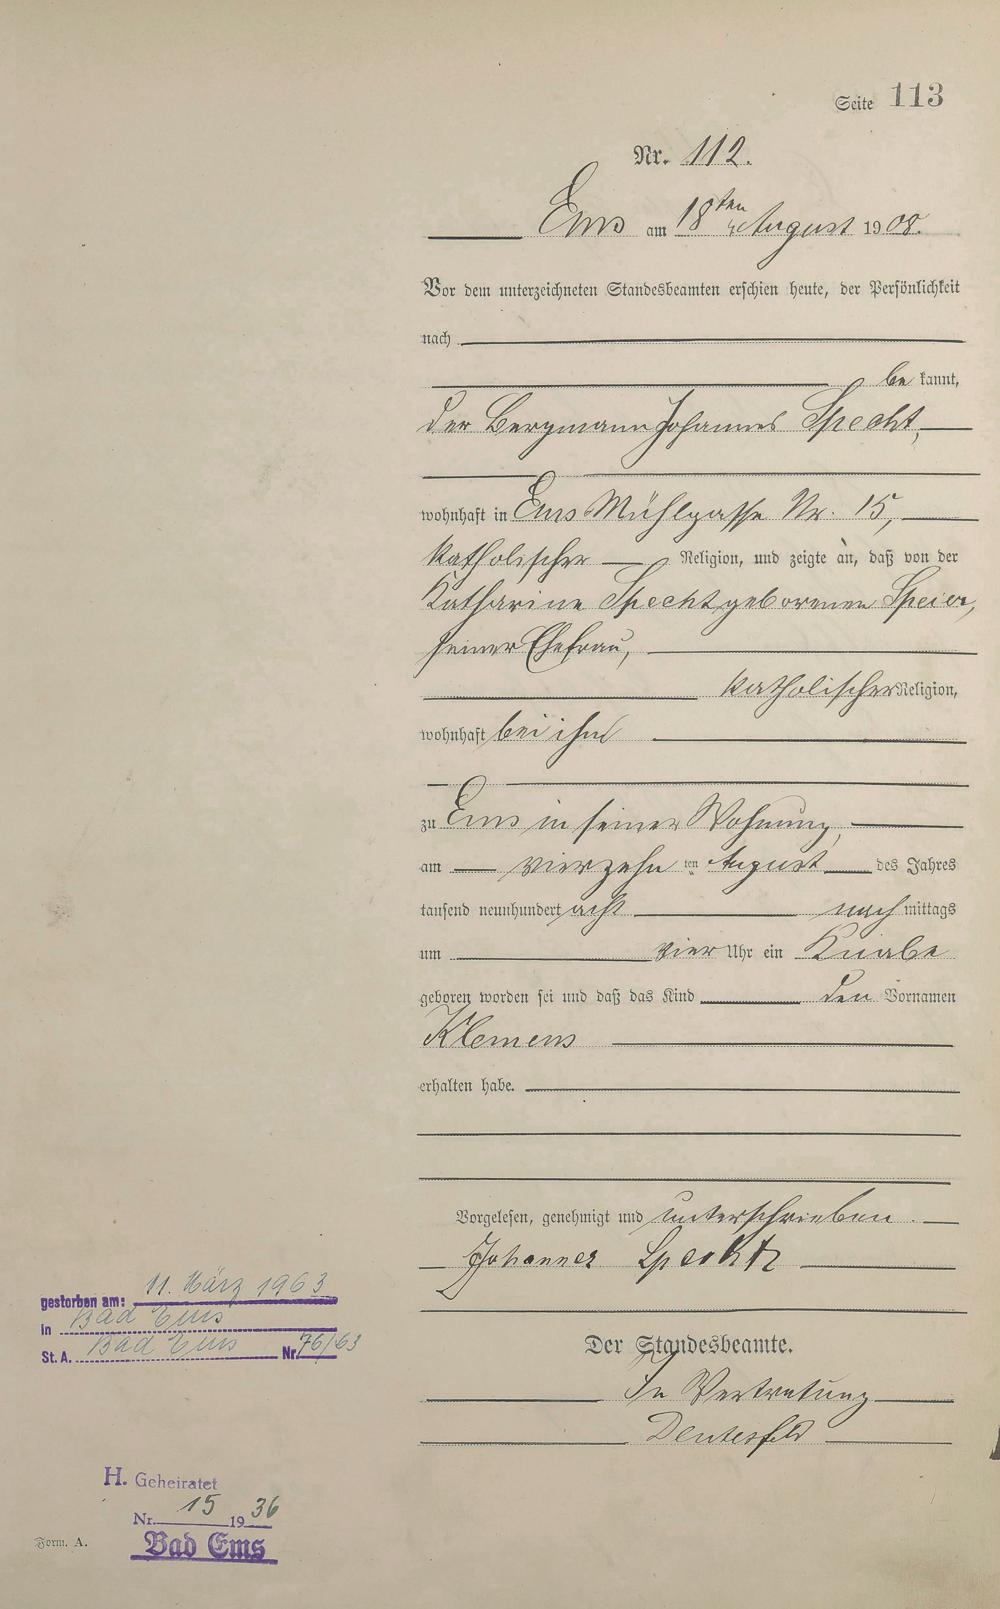 Seite 113
Nr. 112.
Ems am 18ten August 1908.
Vor dem unterzeichneten Standesbeamten erschien heute, der Persönlichkeit
nach
bekannt,
der Bergmann Johannes Specht,
wohnhaft in Ems Mühlgasse Nr. 15,
katholischer Religion, und zeigte an, daß von der
Katharine Specht geborenen Speier,
seiner Ehefrau,
katholischer Religion,
wohnhaft bei ihm
zu Ems in seiner Wohnung,
am vierzehnten August des Jahres
tausend neunhundert acht nachmittags
um vier Uhr ein Knabe
geboren worden sei und daß das Kind den Vornamen
Klemens
erhalten habe.
Vorgelesen, genehmigt und unterschrieben.
Johannes Specht
Der Standesbeamte.
In Vertretung
gestorben am: 11. März 1963
in Bad Ems
St. A. Bad Ems Nr. 76/63
H. Geheiratet
Nr. 15 1936
Bad Ems
Form. A.